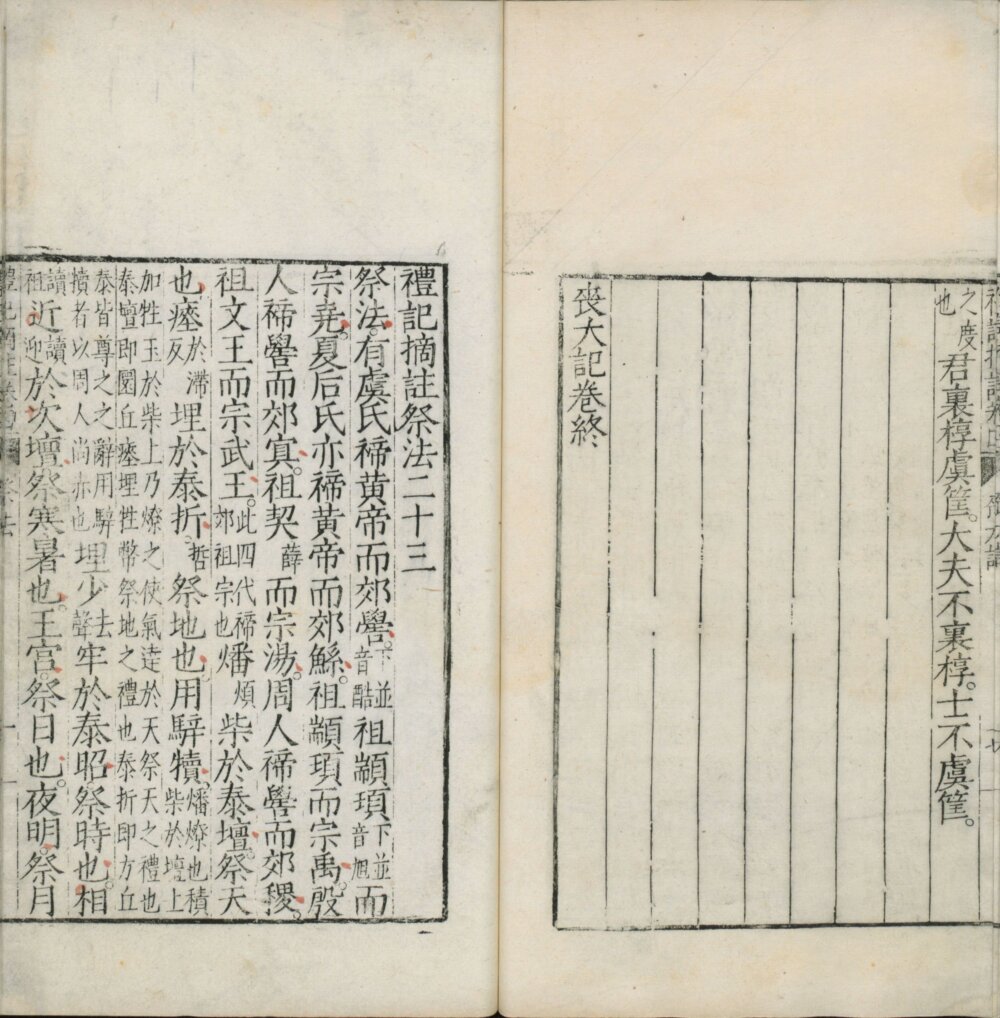 之度也君裏椁虞筐。大夫不裏椁。士不虞筐。
喪大記卷終
禮記摘註祭法二十三
祭法。有虞氏禘黄帝而郊嚳。下並音酷祖顓頊下並音旭而
宗堯。夏后氏亦禘黄帝而郊鯀。祖顓頊而宗禹。殷
人禘嚳而郊冥。祖契薛而宗湯。周人禘嚳而郊稷。
祖文王而宗武王。此四代禘郊祖宗也燔煩柴於泰壇。祭天
也。瘞於滯反埋於泰折。哲祭地也。用騂犢。燔燎也積柴於壇上
加牲玉於柴上乃燎之使氣達於天祭天之禮也泰壇即圜丘瘞埋牲幣祭地之禮也泰折即方丘
泰皆尊之之辭用騂犢者以周人尚赤也埋少去聲牢於泰昭。祭時也。相
讀祖近讀迎於坎壇。祭寒暑也。王宫。祭日也。夜明。祭月